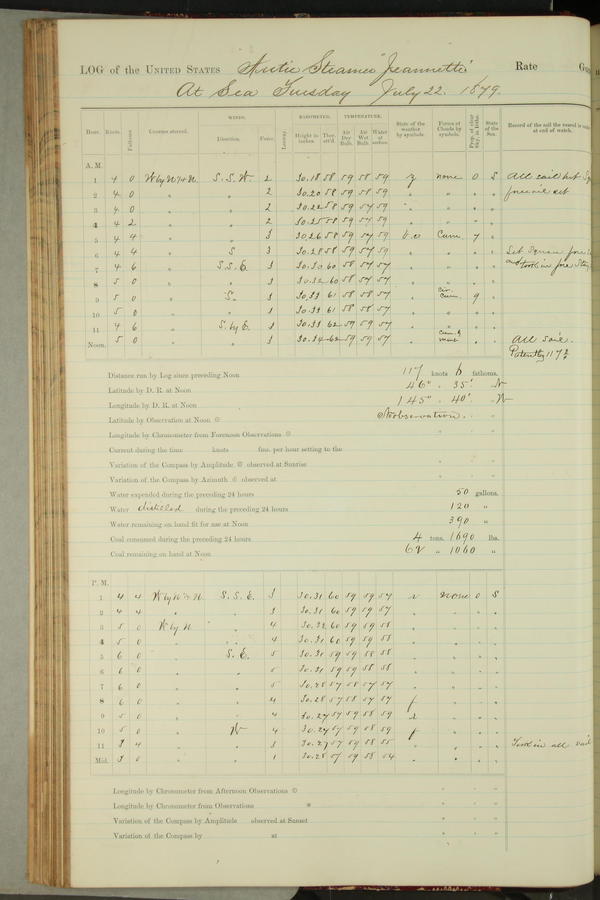 LOG of the UNITED STATES Arctic Steamer "Jeannette" Rate
At Sea Tuesday July 22. 1879.
WINDS. BAROMETER. TEMPERATURE.
Hour. Knots. Fathoms. Courses steered. Direction. Force. Leeway. Height in inches. Ther. att'd. Air Dry Bulb. Air Wet Bulb. Water at surface. State of the weather by symbols. Forms of Clouds by symbols. Prop. of clear Sky, in tenths. State of the Sea. Record of the sail the vessel is under at end of watch.
A. M.
1 4 0 S. S. W. 2 30.18 58 59 58 59 none 0 S
2 4 0 " " 2 30.20 58 59 58 59 " " "
3 4 0 " " 2 30.22 58 59 57 59 " " " "
4 4 2 " " 2 30.25 58 59 " " " "
5 4 4 " " 3 30.26 58 59 57 59 b.c Cum. 7 "
6 4 4 " S 3 30.28 58 59 57 59 " " " "
7 4 6 " S. S. E. 3 30.30 60 58 57 57 " " " "
8 5 0 " " 3 30.32 60 58 57 57 " " " "
9 5 0 " S. 3 30.33 61 58 58 57 " cir. cum. 9 "
10 5 0 " " 3 30.33 61 58 58 57 " " " "
11 4 6 " S. by E. 3 30.33 62 59 59 57 " " " "
Noon. 5 0 " " 3 30.34 62 59 59 57 " " " All sail.
Distance run by Log since preceding Noon 117 knots 6 fathoms.
Latitude by D. R. at Noon 46° 35' N
Longitude by D. R. at Noon 145° 40' W
Latitude by Observation at Noon No observation.
Longitude by Chronometer from Forenoon Observations
Current during the time knots fms. per hour setting to the
Variation of the Compass by Amplitude observed at Sunrise
Variation of the Compass by Azimuth observed at
Water expended during the preceding 24 hours 50 gallons.
Water distilled during the preceding 24 hours 120 "
Water remaining on hand fit for use at Noon 390 "
Coal consumed during the preceding 24 hours 4 tons. 1690 lbs.
Coal remaining on hand at Noon " 1060 "
P. M.
1 4 4 S. S. E. 3 30.31 60 59 59 57 none 0 S
2 4 4 " " 3 30.31 60 59 59 57 " " " "
3 5 0 W by N " 4 30.32 60 59 59 58 " " " "
4 5 0 " " 4 30.31 60 59 59 58 " " " "
5 6 0 " S. E. 5 30.31 59 59 58 58 " " " "
6 6 0 " " 5 30.31 59 59 58 58 " " " "
7 6 0 " " 5 30.28 57 58 57 57 " " " "
8 6 0 " " 4 30.28 57 58 57 57 f " " "
9 5 0 " " 4 30.27 57 59 58 59 " " "
10 5 0 " 4 30.27 57 59 58 59 f " " "
11 3 4 " " 3 30.27 57 59 58 55 " " " " Took in all sail
Mid. 3 0 " " 1 30.28 57 59 58 54 " " " "
Longitude by Chronometer from Afternoon Observations
Longitude by Chronometer from Observations
Variation of the Compass by Amplitude observed at Sunset
Variation of the Compass by at